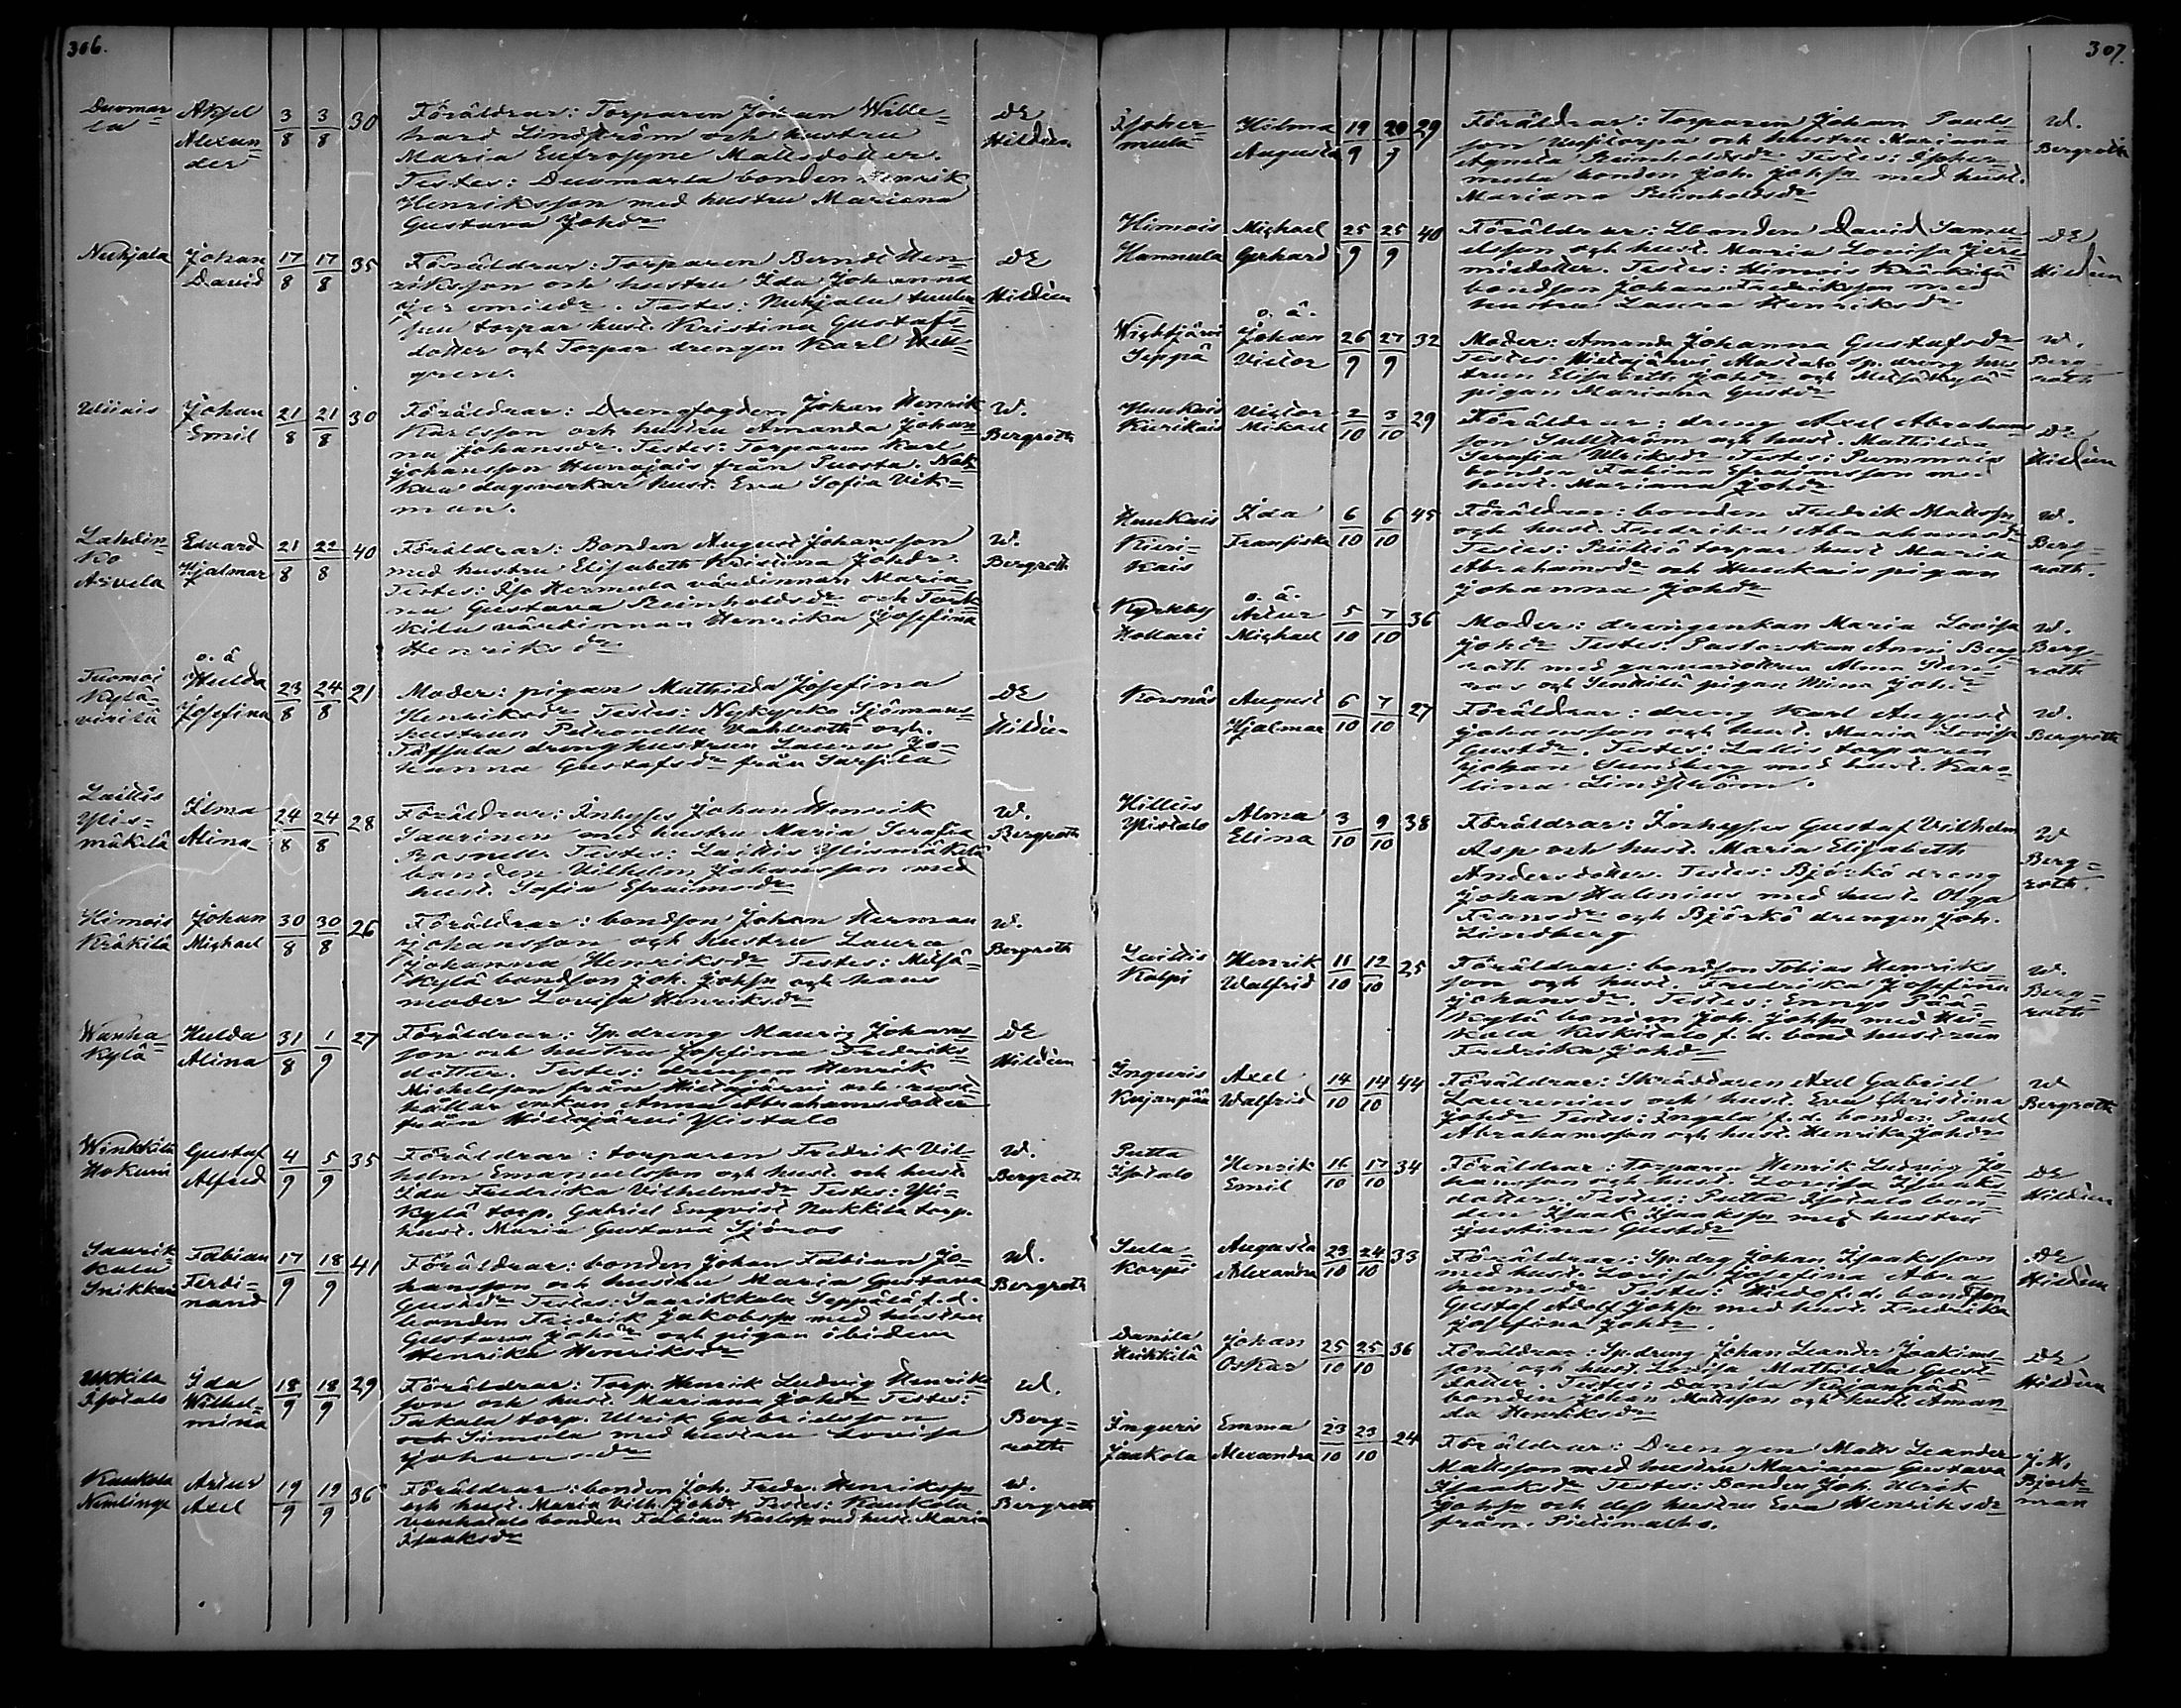 306.
Duomar=
la
Axel
Alexan=
der
3/8 3/8 30
Föräldrar: Torparen Johan Wille=
hard Lindström och hustru
Maria Eufrosyne Mattsdotter.
Testes: Duomarla bonden Henrik
Henriksson med hustru Mariana
Gustava Johdr
DE
Hildén
Nuhjala
Johan
David
17/8 17/8 35
Föräldrar: Torparen Berndt Hen=
riksson och hustru Ida Johanna
Jeremiedr. Testes: Nuhjala
torpar hust. Kristina Gustafs=
dotter och Torpar drengen Karl
gren.
DE
Hildén
Wiiais
Johan
Emil
21/8 21/8 30
Föräldrar: Drengfogden Johan Henrik
Karlsson och hustru Amanda Johan=
na Johansdr. Testes: Torparen Karl
Johansson Hunajais från Puosta. Nak=
kua dagsverkar hust. Eva Sofia Vik=
man.
W.
Bergroth
Lahdin=
ko
Arvela
Edvard
Hjalmar
21/8 22/8 40
Föräldrar: Bonden August Johansson
med hustru Elisabeth Kristina Johdr.
Testes: Iso Hermula värdinnan Maria=
na Gustava Reinholdsdr och Tork=
kila värdinnan Henrika Josefina
Henriksdr
W.
Bergroth
Tuomoi
Kylä=
virilä
o. ä
Hulda
Josefina
23/8 24/8 21
Moder: pigan Mathilda Josefina
Henriksdr Testes: Nykyrko Sjömans=
hustrun Petronella Vahlroth och
Tåfsala drenghustrun Laura Jo=
hanna Gustafsdr från Sarsila
DE
Hildén
Laitis
Ylis=
mäkilä
Ilma
Alina
24/8 24/8 28
Föräldrar: Inhyses Johan Henrik
Saurinen med hustru Maria Serafia
Rosnell. Testes: Laitis Ylismäkilä
bonden Vilhelm Johansson med
hust. Sofia Efraimsdr
W.
Bergroth
Himois
Kräkilä
Johan
Michael
30/8 30/8 26
Föräldrar: bondson Johan Herman
Johansson och hustru Laura
Johanna Henriksdr Testes: Metsä=
kylä bondson Joh. Johsson och hans
moder Lovisa Henriksdr
W.
Bergroth
Wanha=
kylä
Hulda
Alina
31/8 1/9 27
Föräldrar: Sp. dreng Mauriz Johans=
son och hustru Josefina Fredriks=
dotter. Testes: drengen Henrik
Michelsson från Hietajärvi och rust=
hållar enkan Anna Abrahamsdotter
från Hietajärvi Ylistalo
DE
Hildén
Winkkilä
Hokuni
Gustaf
Alfred
4/9 5/9 35
Föräldrar: torparen Fredrik Vil=
helm Emanuelsson och hust och hust
Ida Fredrika Vilhelmsdr Testes: Yli=
kylä torp. Gabriel Enqvist Nukkila torp.
hust. Maria Gustava Sjöros
W.
Bergroth
Saurik
kala
Snikkari
Fabian
Ferdi=
nand
17/9 18/9 41
Föräldrar: bonden Johan Fabian Jo=
hansson och hustru Maria Gustava
Gustdr Testes: Saarikkola Seppälä f.d.
bonden Fredrik Jakobsson med hustru
Gustava Johdr och pigan ibidem
Henrika Henriksdr
W.
Bergroth
Ukkila
Isotalo
Ida
Wilhel=
mina
18/9 18/9 29
Föräldrar: Torp. Henrik Ludvig Henriks=
son och hust. Mariana Johdr Testes:
Takala torp. Ulrik Gabrielsson
och Simola med hustru Lovisa
Johansdr
W.
Berg=
roth
Kaukola
Nimlinge
Artur
Axel
19/9 19/9 36
Föräldrar: bonden Joh. Fredr. Henriksson
och hust. Maria Vilh. Johdr Testes: Kaukola
vanhatalo bonden Fabian Karlsson med hust. Maria
Isaaksdr
W.
Bergroth
307.
Isoher=
mula
Hilma
Augusta
19/9 20/9 29
Föräldrar: Torparen Johan Pauls=
son Uusitorpa och hustru Mariana
Agneta Reinholdsdr. Testes: Isoher=
mula bonden Joh. Johsson med hust.
Mariana Reinholdsdr
W.
Bergroth
Himois
Hannula
Michael
Gerhard
25/9 25/9 40
Föräldrar: Lbonden David Samu=
elsson och hust. Maria Lovisa Jere=
miedotter. Testes: Himois Kräkilä
bondson Johan Fredriksson med
hustru Laura Henriksdr
DE
Hildén
Wiehtjärvi
Seppä
o. ä.
Johan
Victor
26/9 27/9 32
Moder: Amanda Johanna Gustafsdr
Testes: Hietajärvi Alastalo sp. dreng hus=
trun Elisabeth Johdr och Metsäkylä
pigan Mariana Gustdr
W.
Berg=
roth
Huukais
Kierikais
Victor
Mikael
2/10 3/10 29
Föräldrar: dreng Axel Abrahams
son Sullström och hust. Mathilda
Serafia Ulriksdr Testes: Pammais
bonden Fabian Efraimsson m.
hust. Mariana Johdr
DE
Hildén
Huukais
Kieri=
kais
Ida
Fransiska
6/10 6/10 45
Föräldrar: bonden Fredrik Mattsson
och hust. Fredrika Abrahamsdr
Testes: torpar hust Maria
Abrahamsdr och Huukais pigan
Johanna Johdr
W.
Berg=
roth.
Kyrkby
Hollari
o. ä.
Artur
Michael
5/10 7/10 36
Moder: drengenkan Maria Lovisa
Johdr Testes: Pastorskan Anni Berg=
roth med Alma
och pigan Mina Johdr
W.
Berg=
roth
Korsnäs
August
Hjalmar
6/10 7/10 27
Föräldrar: dreng Karl August
Johansson och hust. Maria Lovisa
Gustdr. Testes: Lallis torparen
Johan Sundberg med hust. Karo=
lina Lindström.
W.
Bergroth
Hillus
Ylistalo
Alma
Elina
3/10 9/10 38
Föräldrar: Inhyses Gustaf Vilhelm
Asp och hust. Maria Elisabeth
Andersdotter. Testes: Björkö dreng
Johan Helenius med hust. Olga
Fransdr och Björkö drengen Joh.
Lindberg
W
Berg=
roth.
Laitis
Kolpi
Henrik
Walfrid
11/10 12/10 25
Föräldrar: bondson Tobias Henriks=
son och hust. Fredrika Josefina
Johansdr. Testes: Ennys Pää=
kylä bonden Joh. Johsson med Hei=
kala Keskitalo f. d. bond hustrun
Fredrika Johdr
W.
Berg=
roth
Inguris
Kujanpää
Axel
Walfrid
14/10 14/10 44
Föräldrar: Skräddaren Axel Gabriel
Laurenius och hust. Eva Christina
Johdr Testes: Ingala f.d. bonden Paul
Abrahamsson och hust. Henrika Johdr
W
Bergroth
Putta
Isotalo
Henrik
Emil
16/10 17/10 34
Föräldrar: Torparen Henrik Ludvig Jo=
hansson och hust. Lovisa Isaaks=
dotter. Testes: Putta Isotalo bon=
den Isaak Isaksson med hustru
Justina Gustdr
DE
Hildén
Sula=
korpi
Augusta
Alexandra
23/10 24/10 33
Föräldrar: Sp. drg Johan Isaaksson
med hust. Lovisa Josefina Abra=
hamsdr. Testes: Histo f. d. bondson
Gustaf Adolf Johsson med hust. Fredrika
Josefina Johdr.
DE
Hildén
Danila
Heikkilä
Johan
Oskar
25/10 25/10 36
Föräldrar: Sp. dreng Johan Leander Joakims=
son och hust. Lovisa Mathilda Gust=
dotter. Testes: Danila Kujanpää
bonden Johan Mattsson och hust. Aman=
da Henriksdr
DE
Hildén
Inguris
Jaakola
Emma
Alexandra
23/10 23/10 24
Föräldrar: Drengen Matts Leander
Mattsson med hustru Mariana Gustava
Isaaksdr Testes: Bonden Joh. Ulrik
Johsson och dess hustru Eva Henriksdr
från Pietimatts.
J. H.
Björk=
man